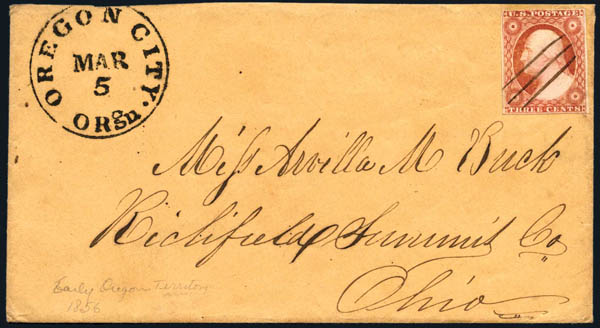 OREGON CITY.
MAR
5
ORgn.
U.S. POSTAGE
THREE CENTS
Miss Arvilla M Buck
Richfield Summit Co
Ohio
Early Oregon Territory
1856